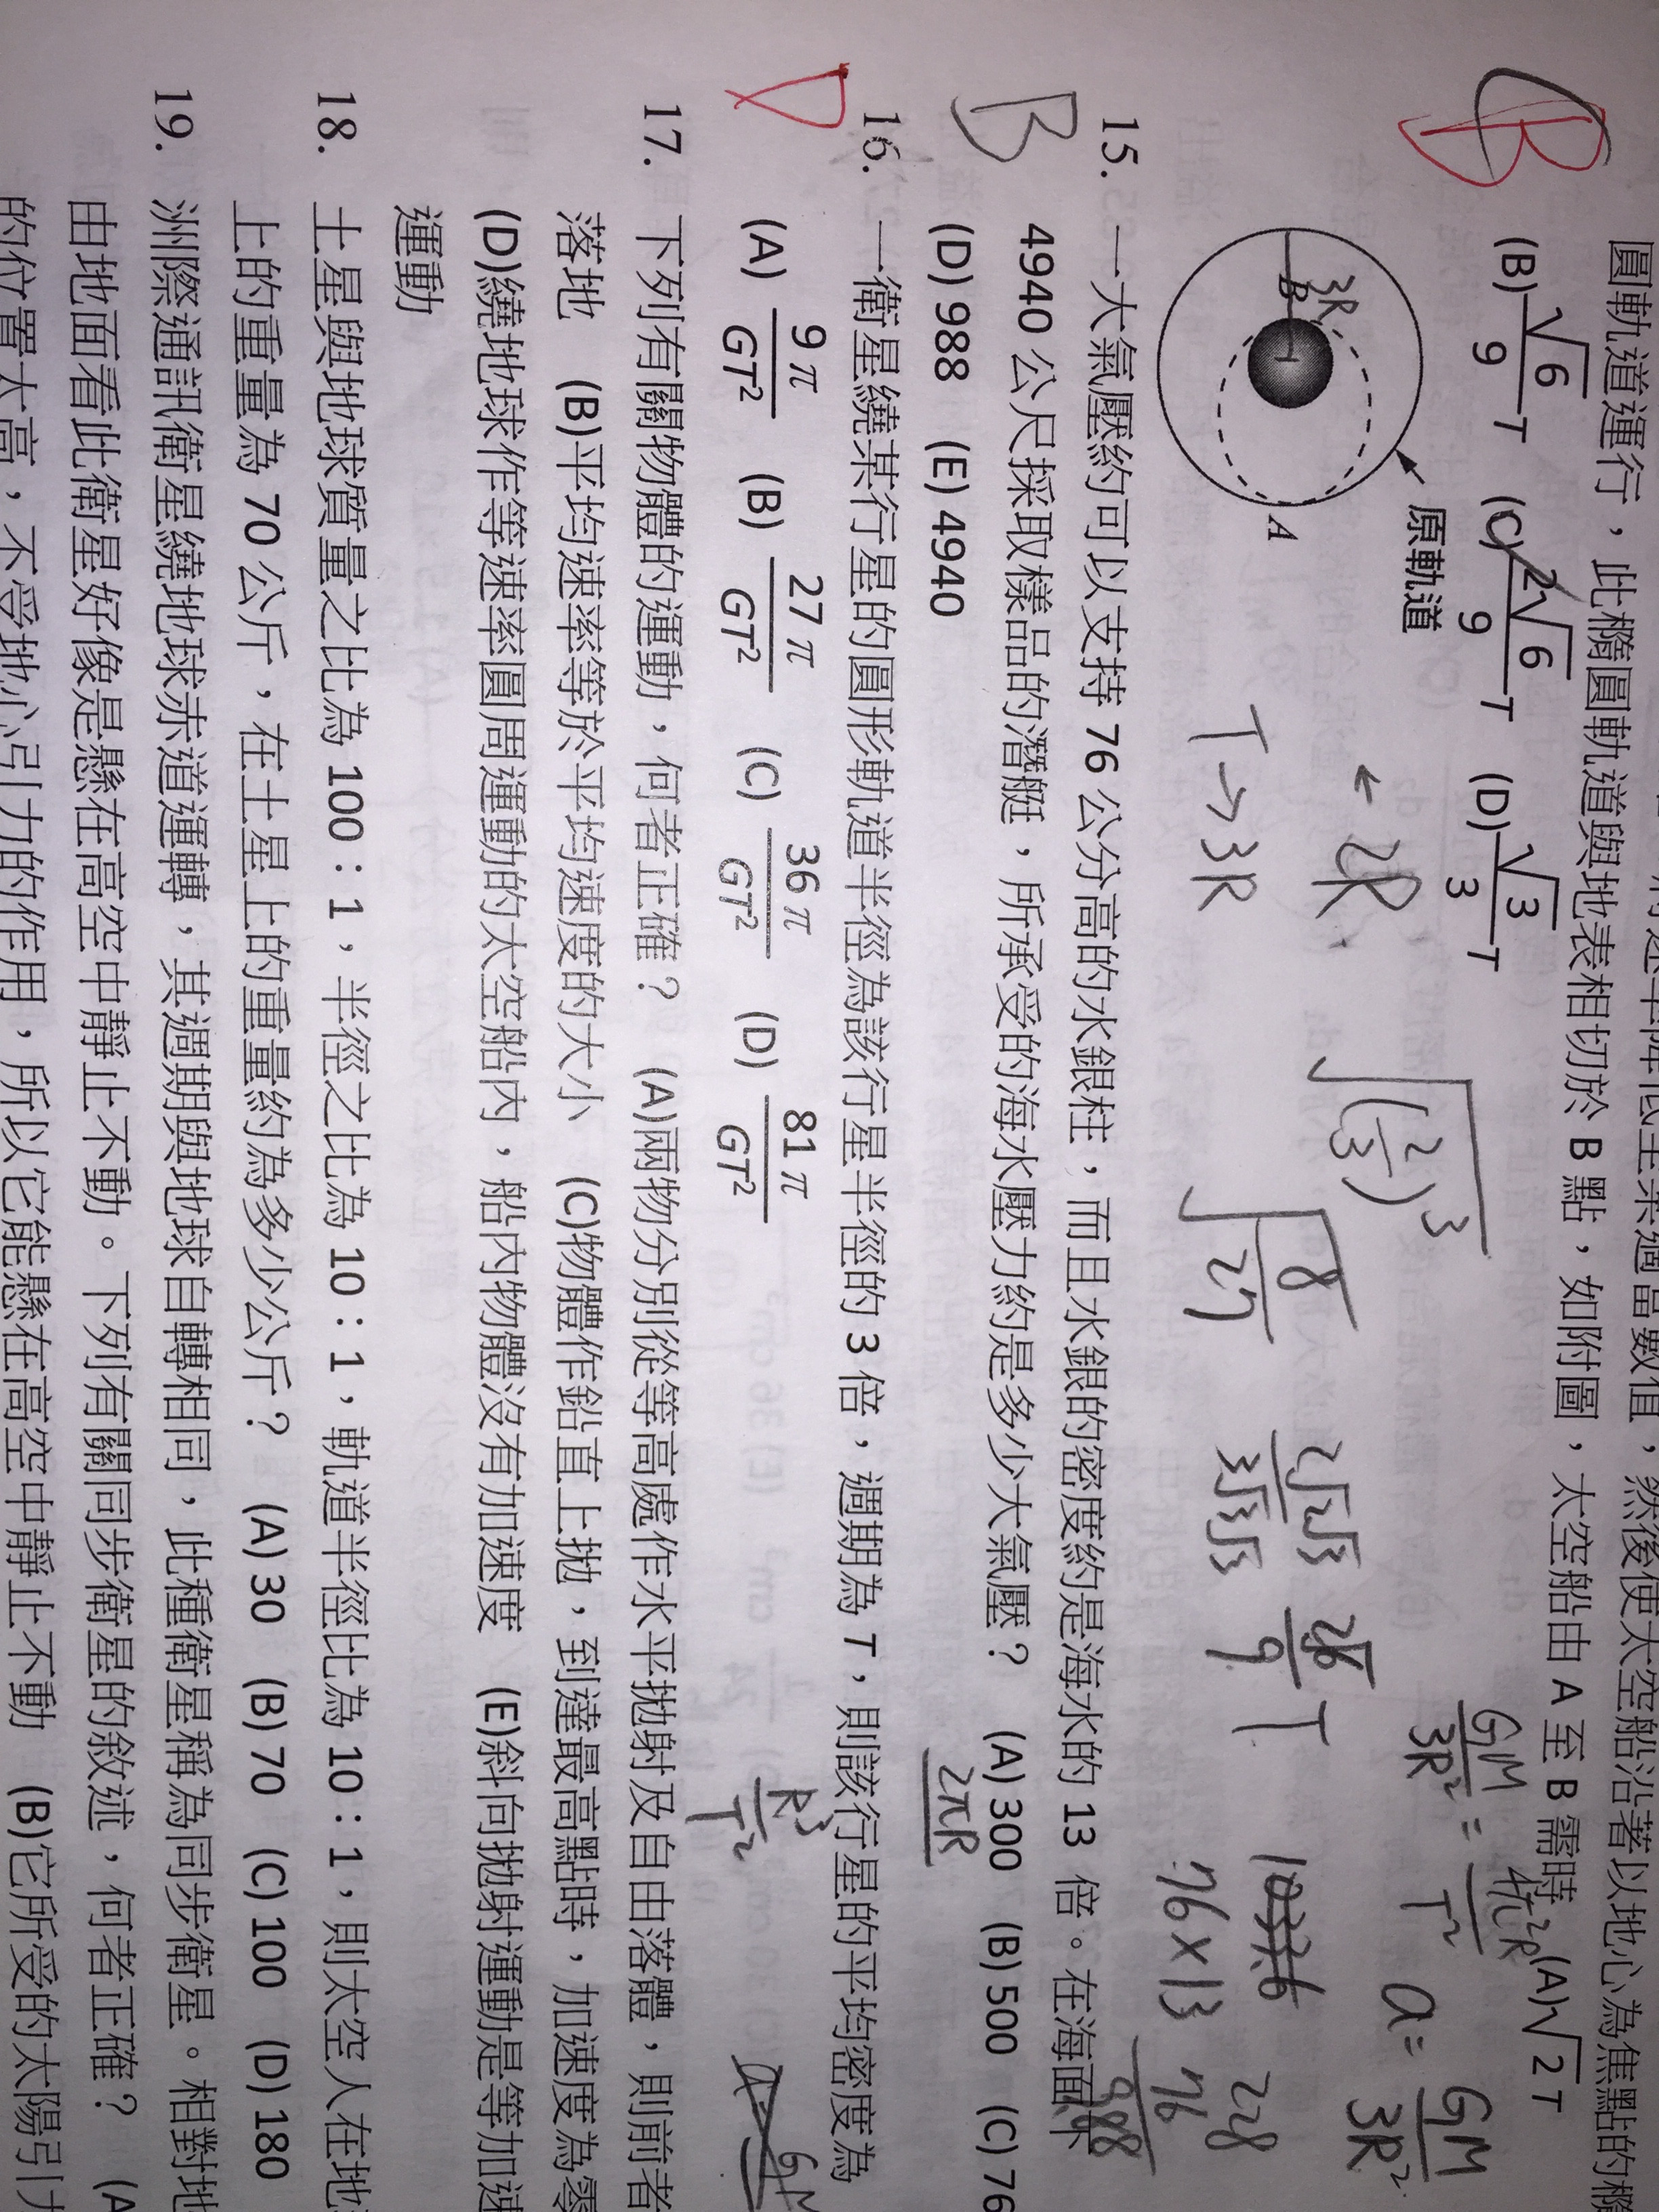 圓軌道運行，此橢圓軌道與地表相切於 B 點，如附圖，太空船由 A 至 B 需時 (A)√2 T
(B) √6/9 T (C) 2√6/9 T (D) √3/3 T
原軌道
A
B
3R
← 2R
T → 3R
√(2/3)³
√8/27
2√2√3/3√3√3
2√6/9 T
GM/3R² = 4π²R/T²
a = GM/3R²
76×13
228
76
988
B
15. 一大氣壓約可以支持 76 公分高的水銀柱，而且水銀的密度約是海水的 13 倍。在海面下
4940 公尺採取樣品的潛艇，所承受的海水壓力約是多少大氣壓？ (A) 300 (B) 500 (C) 76
(D) 988 (E) 4940
2πR
B
16. 一衛星繞某行星的圓形軌道半徑為該行星半徑的 3 倍，週期為 T，則該行星的平均密度為
(A) 9π/GT² (B) 27π/GT² (C) 36π/GT² (D) 81π/GT²
R³/T²
D
17. 下列有關物體的運動，何者正確？ (A)兩物分別從等高處作水平拋射及自由落體，則前者
落地 (B)平均速率等於平均速度的大小 (C)物體作鉛直上拋，到達最高點時，加速度為零
(D)繞地球作等速率圓周運動的太空船內，船內物體沒有加速度 (E)斜向拋射運動是等加速
運動
18. 土星與地球質量之比為 100：1，半徑之比為 10：1，軌道半徑比為 10：1，則太空人在地
上的重量為 70 公斤，在土星上的重量約為多少公斤？ (A) 30 (B) 70 (C) 100 (D) 180
19. 洲際通訊衛星繞地球赤道運轉，其週期與地球自轉相同，此種衛星稱為同步衛星。相對地
由地面看此衛星好像是懸在高空中靜止不動。下列有關同步衛星的敘述，何者正確？ (A
的位置太高，不受地心引力的作用，所以它能懸在高空中靜止不動 (B)它所受的太陽引力